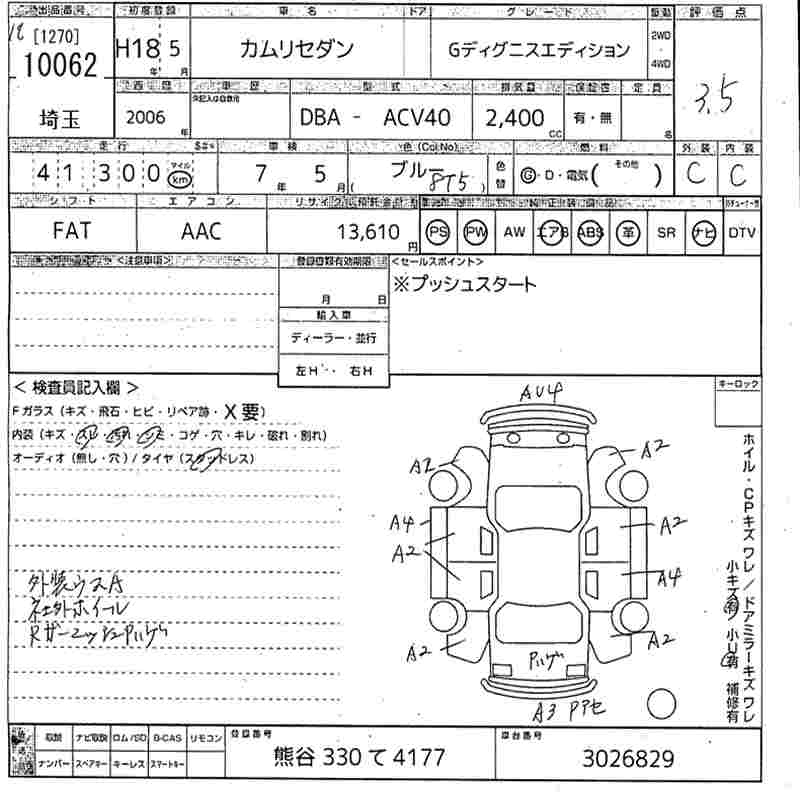 出品番号 初度登録 車名 ドア グレード 駆動 評価点
[1270]
10062
H18 5
年 月
カムリセダン
Gディグニスエディション
2WD
4WD
3.5
埼玉
西暦 車歴 型式 排気量 保証書 定員
2006 年
DBA - ACV40
2,400 CC
有・無
名
走行 車検 色(Col No) 燃料 外装 内装
41300 マイル km
7年 5月
ブルー
( 8T5 )
色替
G・D・電気( その他 )
C C
シフト エアコン リサイクル預託金
FAT AAC 13,610円
PS PW AW エアB ABS 革 SR ナビ DTV
<注意事項> 登録書類有効期限 <セールスポイント>
※プッシュスタート
月 日
輸入車
ディーラー・並行
左H・ 右H
< 検査員記入欄 >
Fガラス (キズ・飛石・ヒビ・リペア跡・X要)
内装 (キズ・スレ・汚れ・シミ・コゲ・穴・キレ・破れ・割れ)
オーディオ (無し・穴) / タイヤ (スタッドレス)
外装ウスA
社外ホイール
キーロック
ホイル・CPキズ ワレ / ドアミラーキズ ワレ
小キズ有 小U有 補修有
AU4
A2 A2
A4 A2
A2 A4
A2 A2
A3
取説 ナビ取説 ロム/SD B-CAS リモコン
ナンバー スペアキー キーレス スマートキー
登録番号
熊谷 330 て 4177
車台番号
3026829